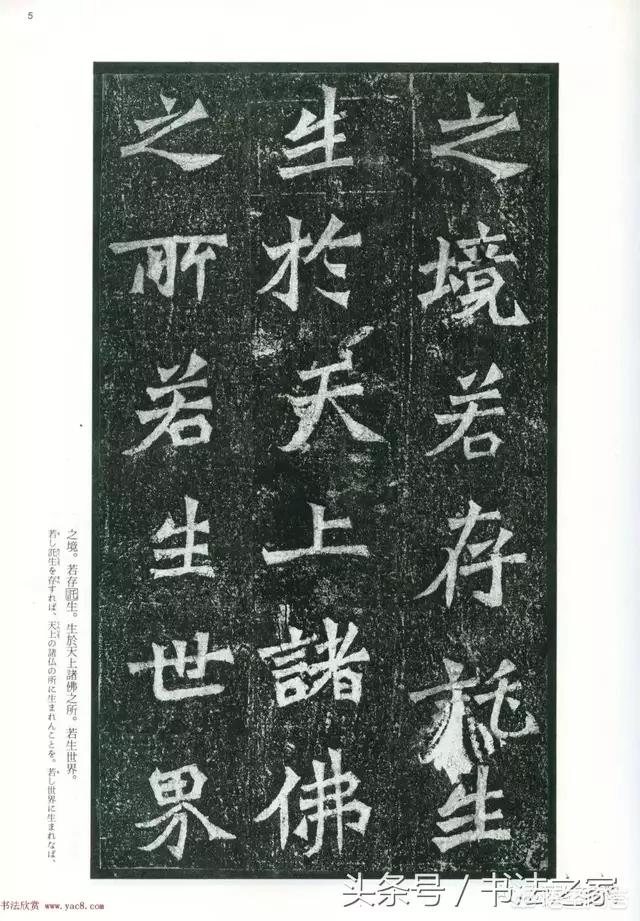 5
之境若存託生
生於天上諸佛
之所若生世界
之境。若存託生。生於天上諸佛之所。若生世界。
若し託生を存すれば、天上の諸仏の所に生まれんことを。若し世界に生まれなば、
书法欣赏 www.yac8.com
头条号/书法之家